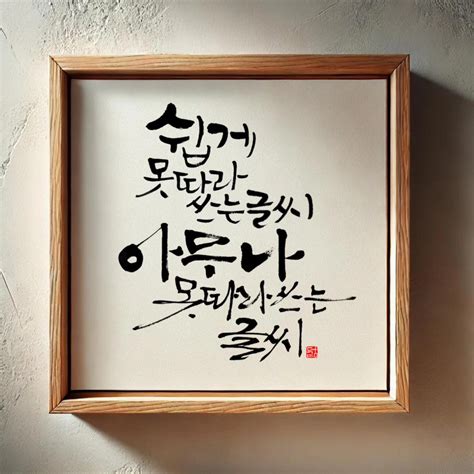 쉽게
못따라
쓰는글씨
아무나
못따라쓰는
글씨